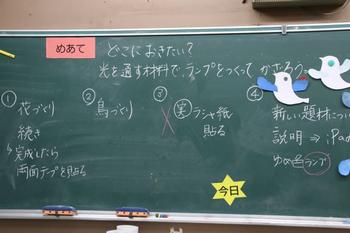 めあて どこにおきたい?
光を通す材料で、ランプをつくって かざろう。
① 花づくり
続き
完成したら
両面テープを貼る
② 鳥づくり
③ × 実 ラシャ紙
貼る
④ 新しい題材につい
説明 → iPad
ゆめ色ランプ
今日